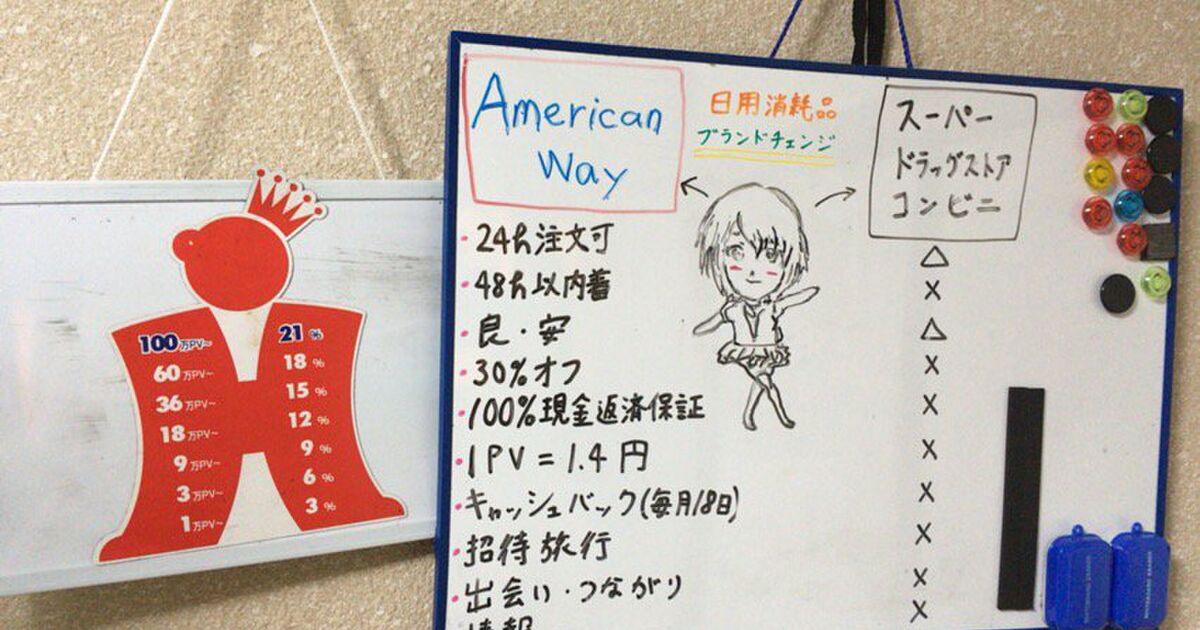 100万PV~ 21%
60万PV~ 18%
36万PV~ 15%
18万PV~ 12%
9万PV~ 9%
3万PV~ 6%
1万PV~ 3%
American
Way
日用消耗品
ブランドチェンジ
スーパー
ドラッグストア
コンビニ
・24h注文可 △
・48h以内着 ×
・良・安 △
・30%オフ ×
・100%現金返済保証 ×
・1PV=1.4円 ×
・キャッシュバック(毎月18日) ×
・招待旅行 ×
・出会い・つながり ×
情報 ×